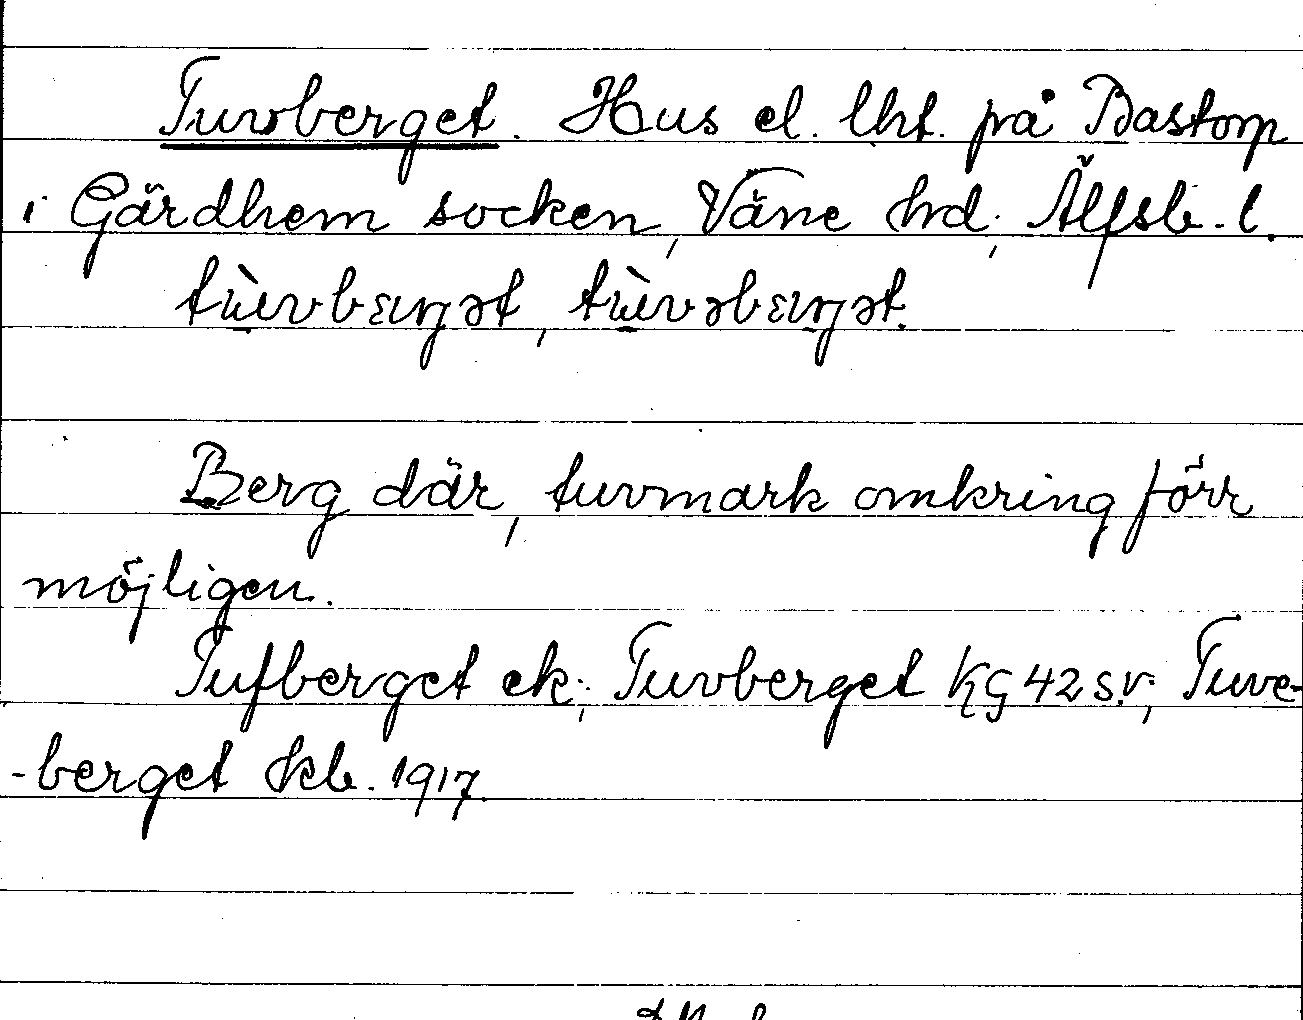 Tuvberget. Hus el. lht. på Bastorp
i Gärdhem socken, Väne hd; Älfsb. l.
tùvbærjət, tùvəbærjət.
Berg där, tuvmark omkring förr
möjligen.
Tufberget ek; Tuvberget KG 42 s.v; Tuve-
-berget kb. 1917.